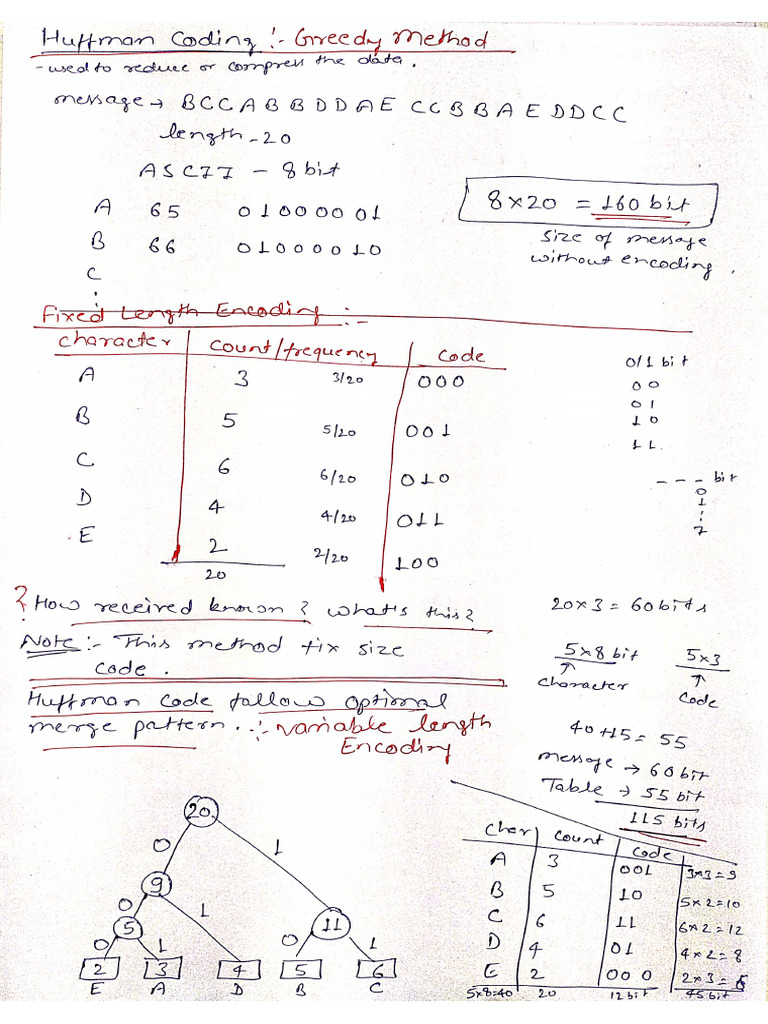 Huffman Coding :- Greedy Method
- used to reduce or compress the data.
message → BCCABBDDAE CCBBAEDDCC
length - 20
ASCII - 8 bit
A 65 01000001
8×20 = 160 bit
B 66 01000010
size of message
without encoding.
C
:
Fixed Length Encoding :-
character count/frequency code
A 3 3/20 000
B 5 5/20 001
C 6 6/20 010
D 4 4/20 011
E 2 2/20 100
20
0/1 bit
00
01
10
11
- - - bit
0
1
:
7
? How received known? what's this?
20×3 = 60 bits
Note :- This method fix size
code.
5×8 bit 5×3
↑ ↑
character code
Huffman code follow optimal
merge pattern. :- variable length
Encoding
40+15 = 55
message → 60 bit
Table → 55 bit
115 bits
20
0 1
9
0 1
5 11
0 1 0 1
2 3 4 5 6
E A D B C
Char count code
A 3 001 3×3=9
B 5 10 5×2=10
C 6 11 6×2=12
D 4 01 4×2=8
E 2 000 2×3=6
5×8=40 20 12 bit 45 bit